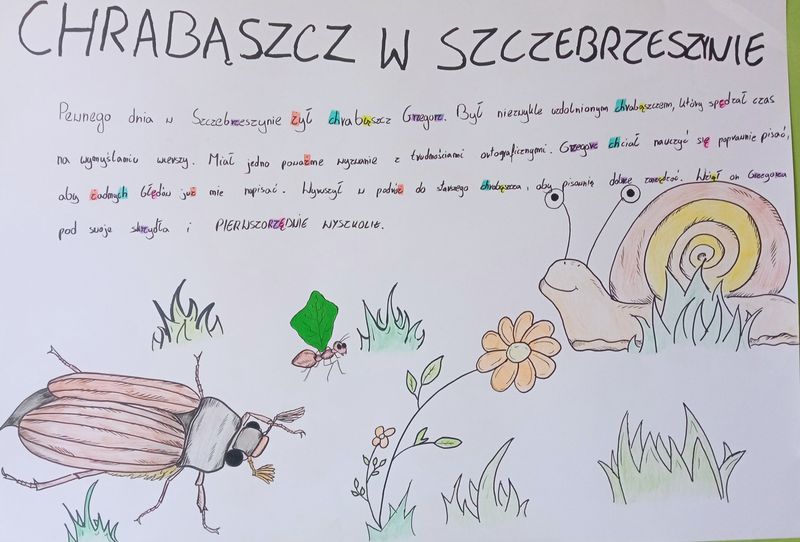 CHRABĄSZCZ W SZCZEBRZESZYNIE
Pewnego dnia w Szczebrzeszynie żył chrabąszcz Grzegorz. Był niezwykle uzdolnionym chrabąszczem, który spędzał czas
na wymyślaniu wierszy. Miał jedno poważne wyzwanie z trudnościami ortograficznymi. Grzegorz chciał nauczyć się poprawnie pisać,
aby żadnych błędów już nie napisać. Wyruszył w podróż do starszego chrabąszcza, aby pisownię dobrze zarządzać. Wziął on Grzegorza
pod swoje skrzydła i PIERWSZORZĘDNIE WYSZKOLIŁ.